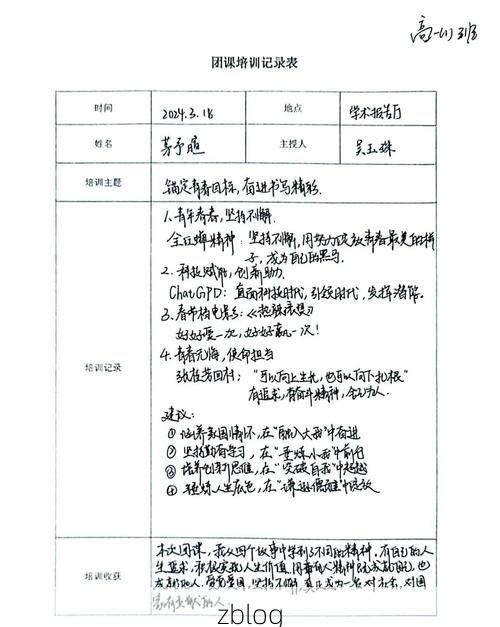 高一(1)班
团课培训记录表
时间 2024.3.18 地点 学术报告厅
姓名 茅予 主授人 吴玉珠
培训主题 锚定青春目标，奋进书写精彩
培训记录
1.青年青春，坚持不懈.
全红婵精神：坚持不懈，用努力绽放青春最美的样
子，成为自己的黑马.
2.科技赋能，创新助力.
ChatGPD：直面科技时代，引领时代，发挥潜能。
3.春节档电影：《热辣滚烫》
好好爱一次，好好赢一次！
4.青春无悔，使命担当
张桂芳回村：“可以向上生长，也可以向下扎根”
有追求，有奋斗精神，
建议：
① 培养家国情怀，在“融入大我”中奋进
② 坚持勤奋学习，在“垂炼小我”中前行
③ 培养创新思维，在“突破自我”中超越
④ 人生底色，在“中绽放
培训收获
本次团课，我从四个故事中学到了不同的精神。有自己的人
生追求，积极实现人生价值，用奋斗精神成就自己，也
成就他人。坚持不懈，真正成为一名对未来，对国
家有贡献的人
zblog